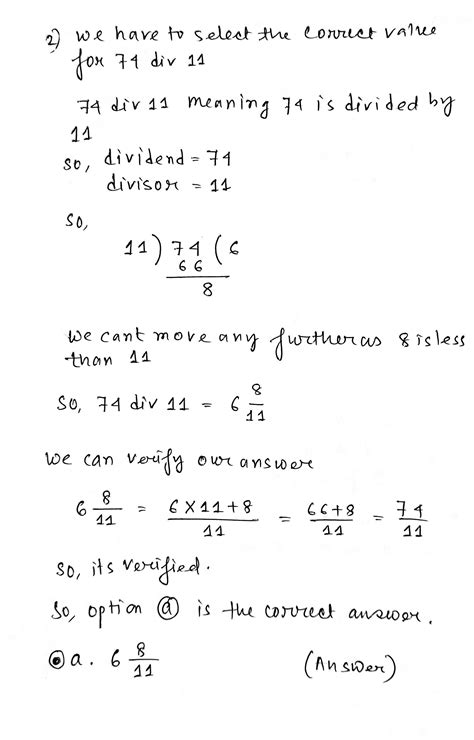 2) we have to select the correct value
for 74 div 11
74 div 11 meaning 74 is divided by
11
so, dividend = 74
divisor = 11
so,
11 ) 74 ( 6
66
8
We cant move any further as 8 is less
than 11
so, 74 div 11 = 6 8/11
we can verify our answer
6 8/11 = 6×11+8/11 = 66+8/11 = 74/11
so, its verified.
so, option ⓐ is the correct answer.
a. 6 8/11 (Answer)